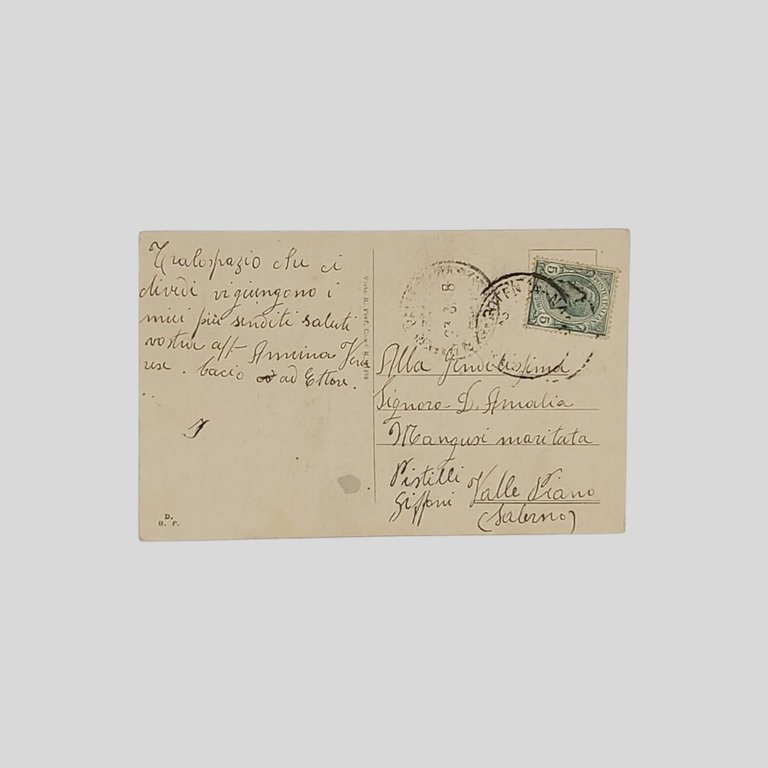 Tralospazio che ci
dividi vi giungono i
miei più senditi saluti
vostra aff Annina
bacio ad Ettore.
D.
G. P.
5
5
Alla Gendilissima
Signora D. Amalia
Mangusi maritata
Pistilli
Giffoni Valle Piano
(Salerno)